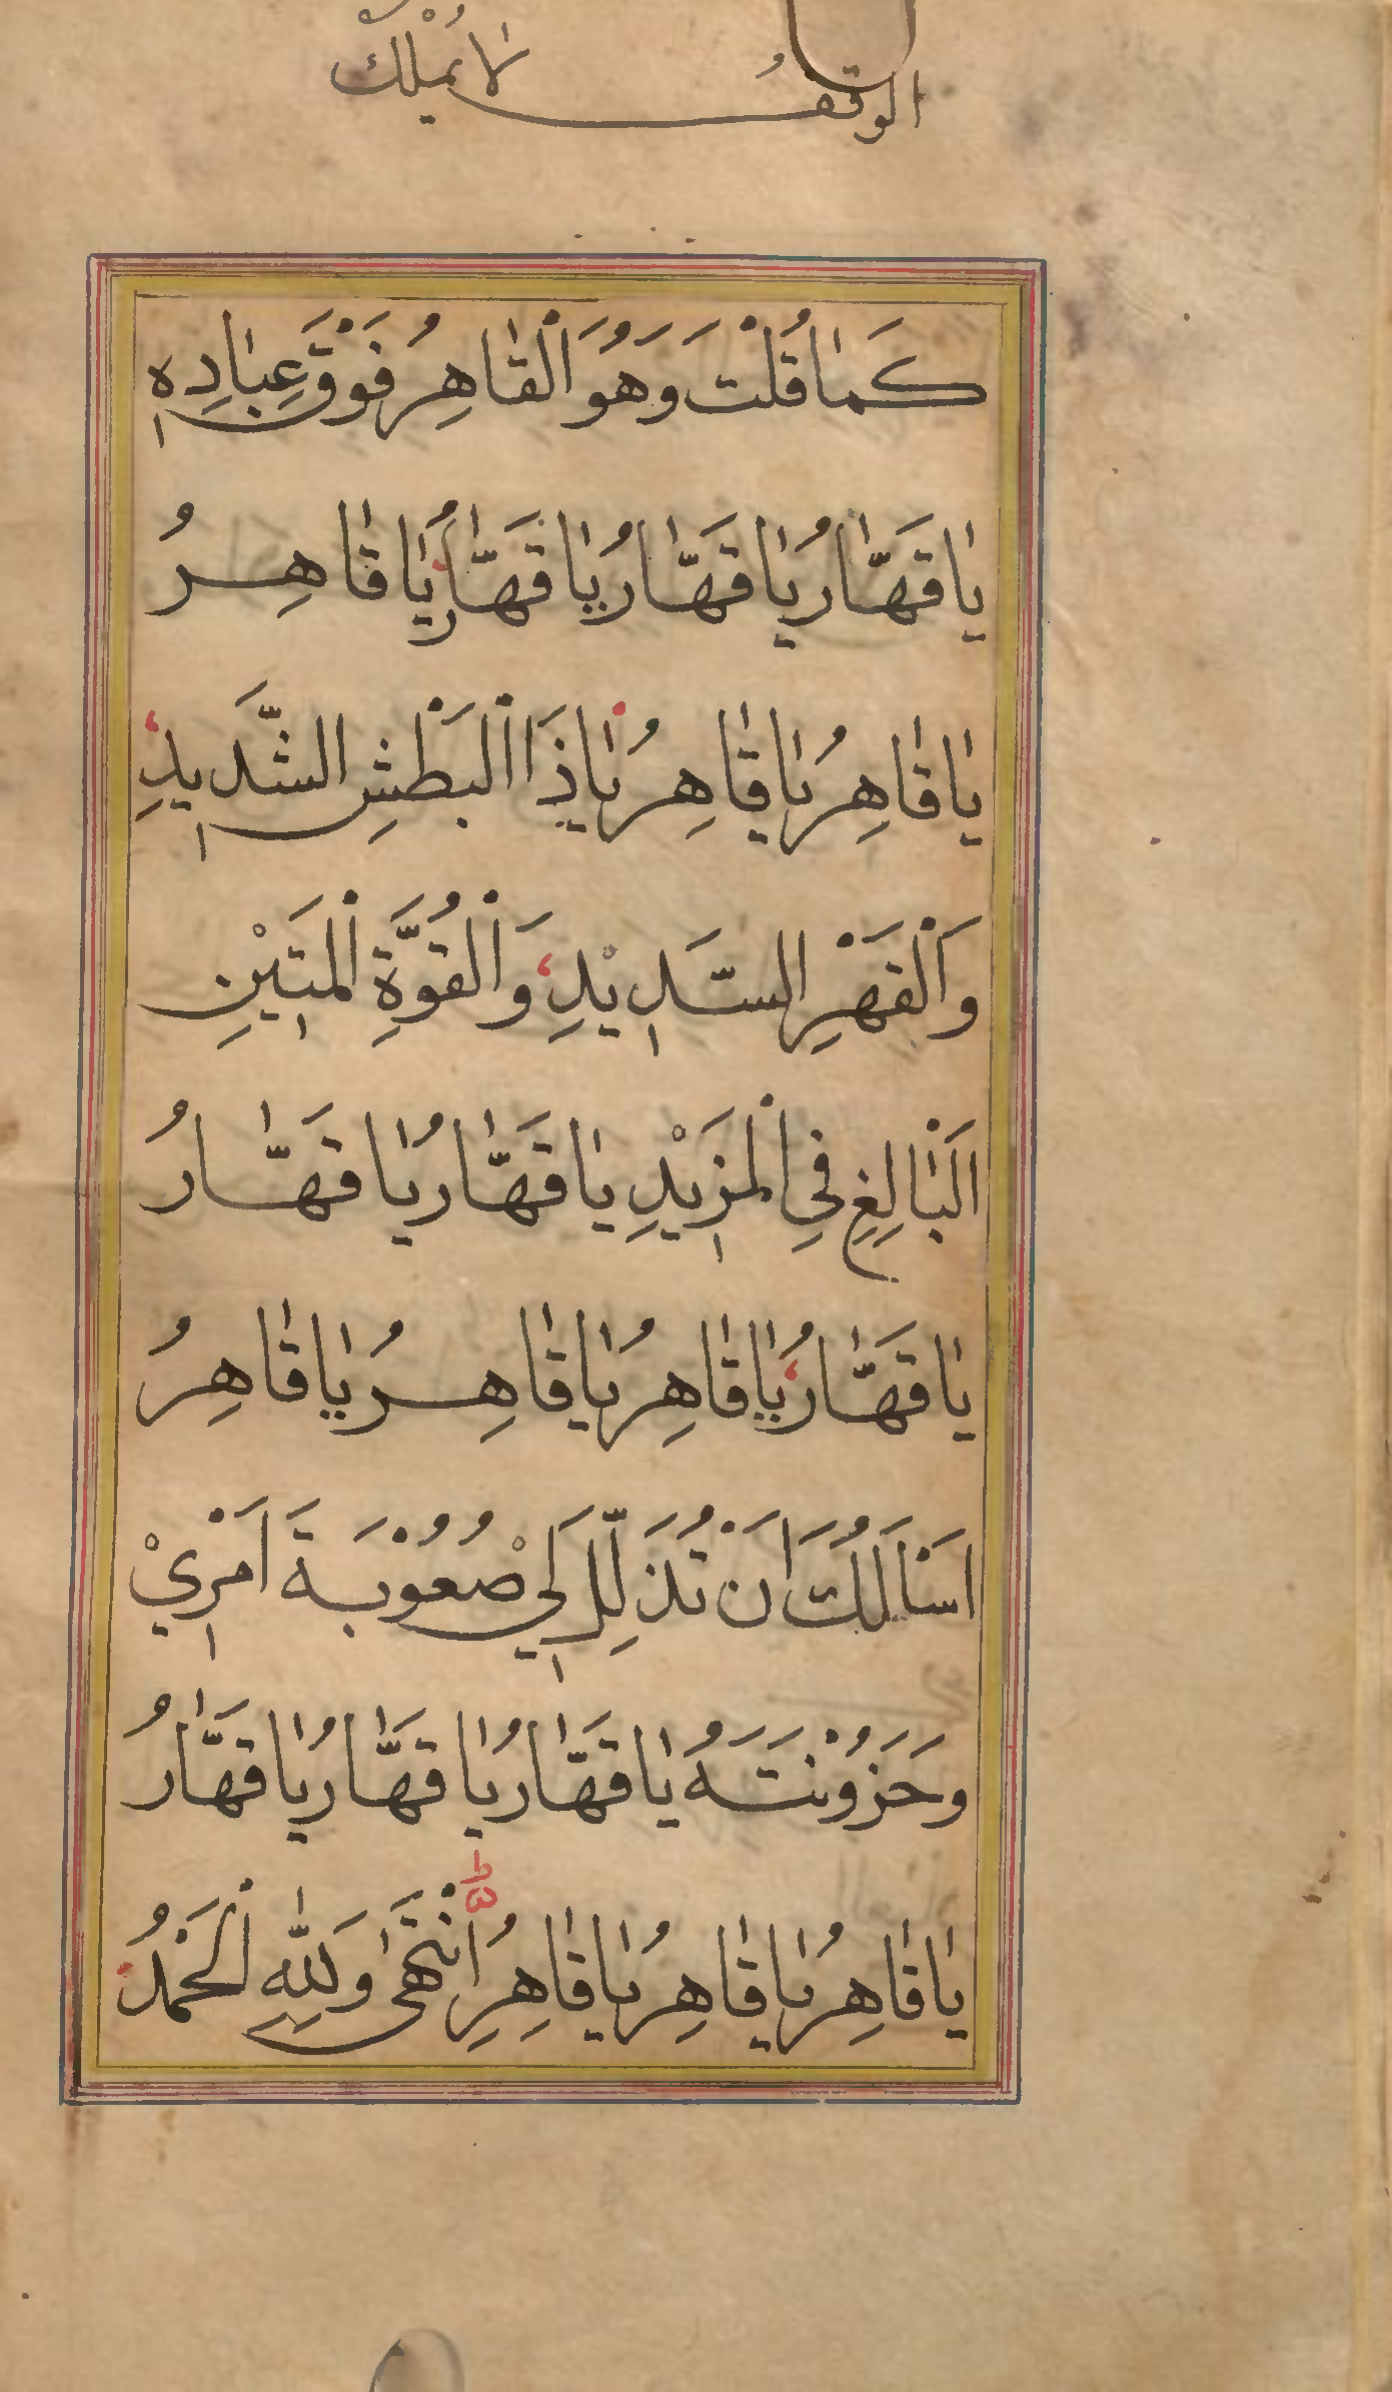 الوقف لا يُمْلَك
كَمَا قُلْتَ وَهُوَ الْقَاهِرُ فَوْقَ عِبَادِهِ
يَا قَهَّارُ يَا قَهَّارُ يَا قَهَّارُ يَا قَاهِرُ
يَا قَاهِرُ يَا قَاهِرُ يَا ذَا الْبَطْشِ الشَّدِيدِ
وَالْقَهْرِ السَّدِيْدِ وَالْقُوَّةِ الْمَتِيْنِ
الْبَالِغِ فِي الْمَزِيْدِ يَا قَهَّارُ يَا قَهَّارُ
يَا قَهَّارُ يَا قَاهِرُ يَا قَاهِرُ يَا قَاهِرُ
اَسْاَلُكَ اَنْ تُذَلِّلَ لِيْ صُعُوْبَةَ اَمْرِيْ
وَحَزُوْنَتَهُ يَا قَهَّارُ يَا قَهَّارُ يَا قَهَّارُ
يَا قَاهِرُ يَا قَاهِرُ يَا قَاهِرُ اِنْتَهَىٰ وَلِلّٰهِ الْحَمْدُ